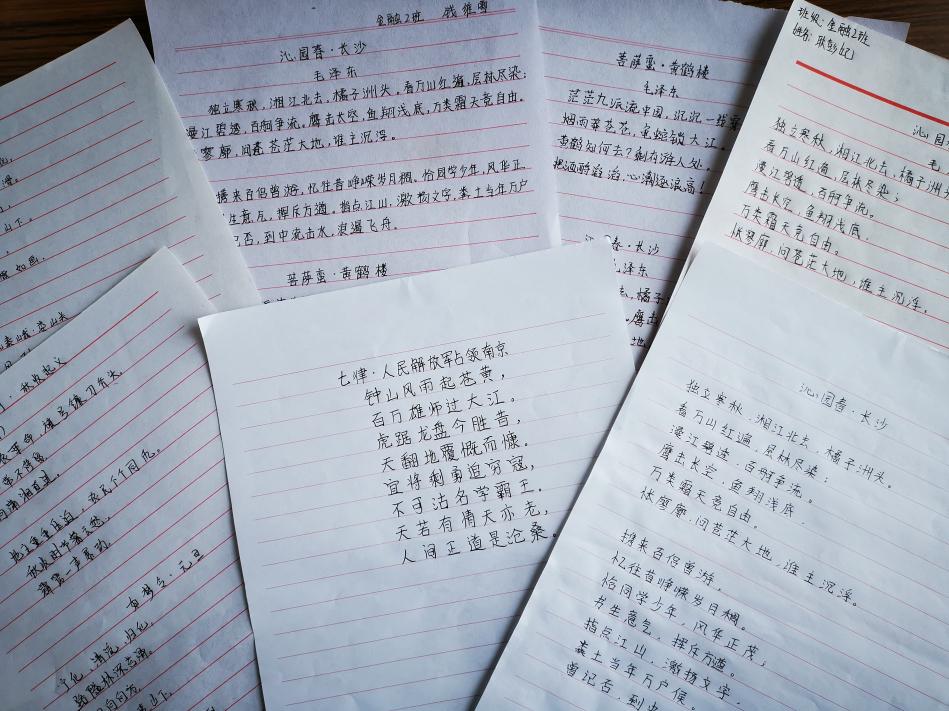 金融2班
沁园春·长沙
毛泽东
独立寒秋,湘江北去,橘子洲头。看万山红遍,层林尽染;
漫江碧透,百舸争流。鹰击长空,鱼翔浅底,万类霜天竞自由。
寥廓,问苍茫大地,谁主沉浮。
携来百侣曾游,忆往昔峥嵘岁月稠。恰同学少年,风华正
生意气,挥斥方遒。指点江山,激扬文字,粪土当年万户
记否,到中流击水,浪遏飞舟。
菩萨蛮·黄鹤楼
菩萨蛮·黄鹤楼
毛泽东
茫茫九派流中国,沉沉一线穿
烟雨莽苍苍,龟蛇锁大江。
黄鹤知何去?剩有游人处。
把酒酹滔滔,心潮逐浪高!
春·长沙
泽东
橘子
班级:金融2班
姓名:
沁园
毛
独立寒秋,湘江北去,橘子洲
看万山红遍,层林尽染;
漫江碧透,百舸争流。
鹰击长空,鱼翔浅底。
万类霜天竞自由。
怅寥廓,问苍茫大地,谁主沉浮。
如思.
娄山关
秋收起义
镰刀斧头.
重重压迫,农民个个同仇.
秋收时节暮云愁.
霹雳一声暴动.
如梦令·元旦
宁化、清流、归化.
路隘林深苔滑.
七律·人民解放军占领南京
钟山风雨起苍黄,
百万雄师过大江。
虎踞龙盘今胜昔,
天翻地覆慨而慷。
宜将剩勇追穷寇,
不可沽名学霸王.
天若有情天亦老,
人间正道是沧桑。
沁园春·长沙
独立寒秋、湘江北去,橘子洲头.
看万山红遍,层林尽染;
漫江碧透,百舸争流。
鹰击长空,鱼翔浅底.
万类霜天竞自由.
怅寥廓.问苍茫大地,谁主沉浮。
携来百侣曾游,
忆往昔峥嵘岁月稠.
恰同学少年,风华正茂;
书生意气,挥斥方遒.
指点江山,激扬文字.
粪土当年万户侯.
曾记否,到中